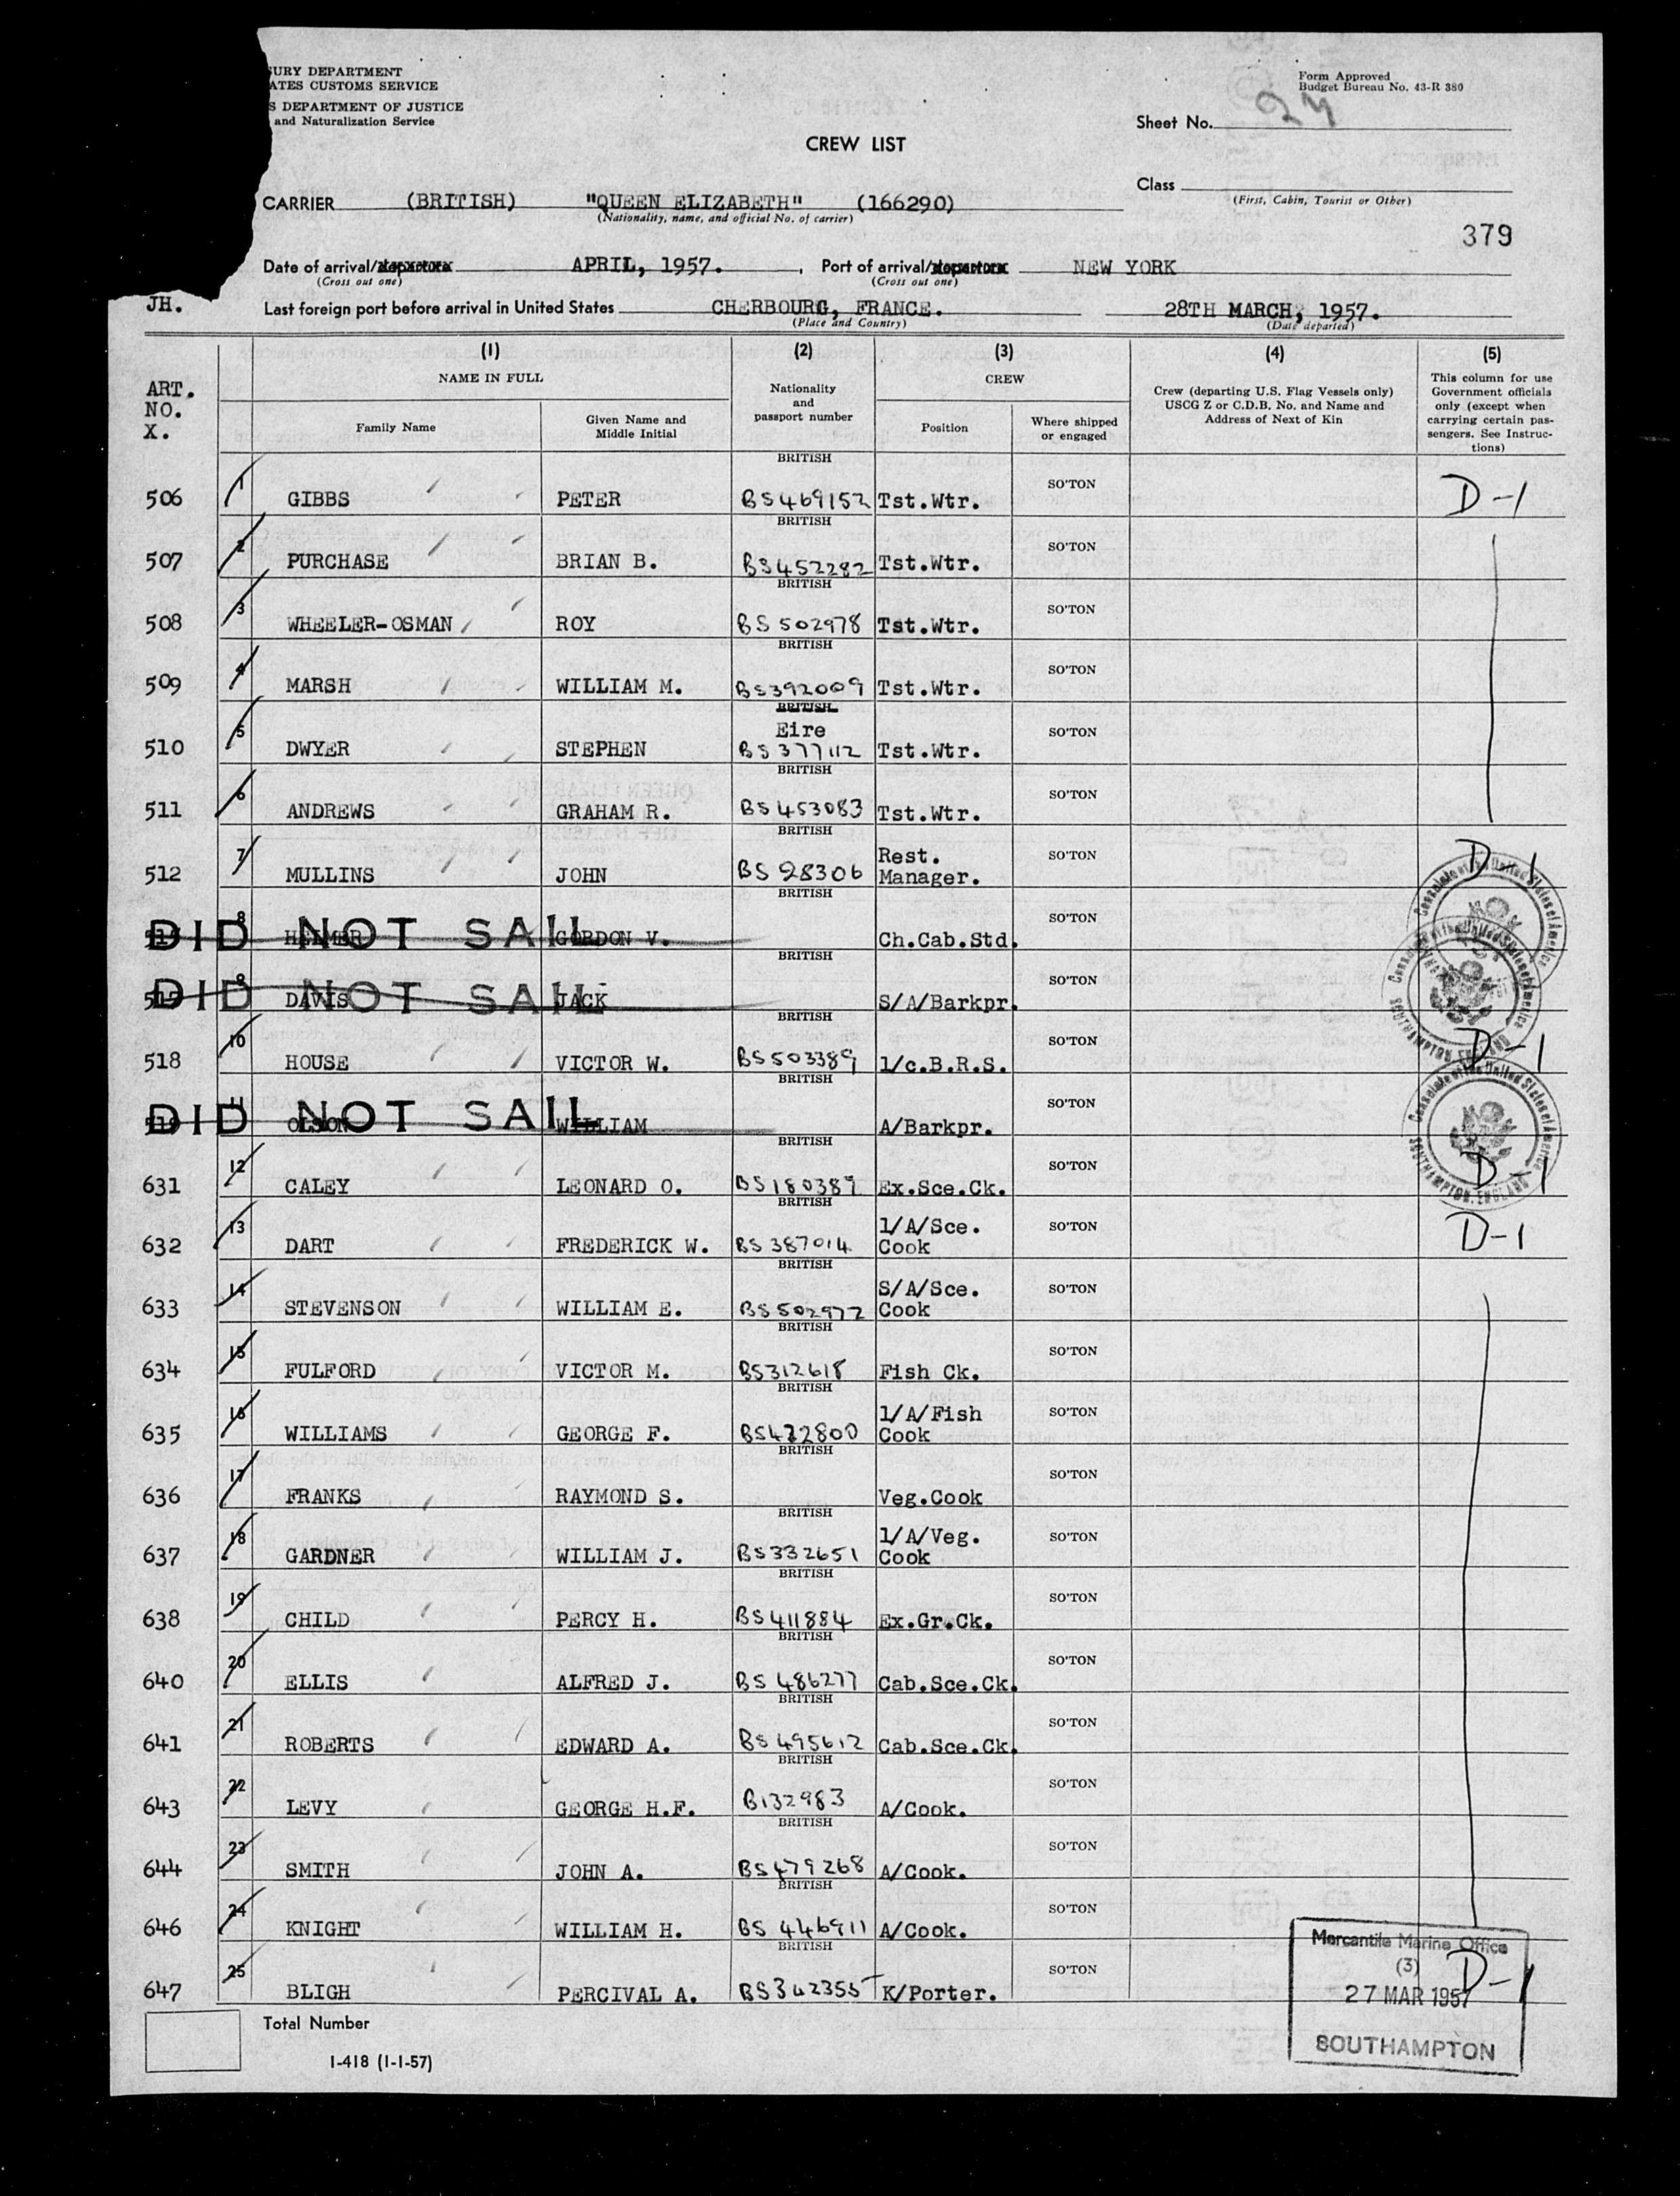 SURY DEPARTMENT
ATES CUSTOMS SERVICE
S DEPARTMENT OF JUSTICE
and Naturalization Service
Form Approved
Budget Bureau No. 43-R 380
Sheet No.
CREW LIST
Class
(First, Cabin, Tourist or Other)
CARRIER (BRITISH) "QUEEN ELIZABETH" (166290)
(Nationality, name, and official No. of carrier)
379
Date of arrival/departure APRIL, 1957. , Port of arrival/departure NEW YORK
(Cross out one) (Cross out one)
JH. Last foreign port before arrival in United States CHERBOURG, FRANCE. 28TH MARCH, 1957.
(Place and Country) (Date departed)
(1) (2) (3) (4) (5)
ART. NO. X.
NAME IN FULL
Family Name
Given Name and Middle Initial
Nationality and passport number
CREW
Position
Where shipped or engaged
Crew (departing U.S. Flag Vessels only)
USCG Z or C.D.B. No. and Name and
Address of Next of Kin
This column for use
Government officials
only (except when
carrying certain pas-
sengers. See Instruc-
tions)
506 1 GIBBS PETER BRITISH BS469152 Tst.Wtr. SO'TON D-1
507 2 PURCHASE BRIAN B. BRITISH BS452282 Tst.Wtr. SO'TON
508 3 WHEELER-OSMAN ROY BRITISH BS502978 Tst.Wtr. SO'TON
509 4 MARSH WILLIAM M. BRITISH BS392009 Tst.Wtr. SO'TON
510 5 DWYER STEPHEN BRITISH Eire BS377112 Tst.Wtr. SO'TON
511 6 ANDREWS GRAHAM R. BRITISH BS453083 Tst.Wtr. SO'TON
512 7 MULLINS JOHN BRITISH BS28306 Rest. Manager. SO'TON D-1
8 HELMER GORDON V. BRITISH Ch.Cab.Std. SO'TON
DID NOT SAIL
9 DAVIS JACK BRITISH S/A/Barkpr. SO'TON
DID NOT SAIL
518 10 HOUSE VICTOR W. BRITISH BS503389 1/c.B.R.S. SO'TON D-1
11 OLSON WILLIAM BRITISH A/Barkpr. SO'TON
DID NOT SAIL
631 12 CALEY LEONARD O. BRITISH BS180389 Ex.Sce.Ck. SO'TON D-1
632 13 DART FREDERICK W. BRITISH BS387014 1/A/Sce. Cook SO'TON D-1
633 14 STEVENSON WILLIAM E. BRITISH BS502972 S/A/Sce. Cook SO'TON
634 15 FULFORD VICTOR M. BRITISH BS312618 Fish Ck. SO'TON
635 16 WILLIAMS GEORGE F. BRITISH BS472800 1/A/Fish Cook SO'TON
636 17 FRANKS RAYMOND S. BRITISH Veg.Cook SO'TON
637 18 GARDNER WILLIAM J. BRITISH BS332651 1/A/Veg. Cook SO'TON
638 19 CHILD PERCY H. BRITISH BS411884 Ex.Gr.Ck. SO'TON
640 20 ELLIS ALFRED J. BRITISH BS486277 Cab.Sce.Ck. SO'TON
641 21 ROBERTS EDWARD A. BRITISH BS495612 Cab.Sce.Ck. SO'TON
643 22 LEVY GEORGE H.F. BRITISH B132983 A/Cook. SO'TON
644 23 SMITH JOHN A. BRITISH BS479268 A/Cook. SO'TON
646 24 KNIGHT WILLIAM H. BRITISH BS446911 A/Cook. SO'TON
647 25 BLIGH PERCIVAL A. BRITISH BS342355 K/Porter. SO'TON D-1
Consulate of the United States of America
SOUTHAMPTON ENGLAND
Consulate of the United States of America
SOUTHAMPTON, ENGLAND
Mercantile Marine Office
(3)
27 MAR 1957
SOUTHAMPTON
Total Number
I-418 (1-1-57)